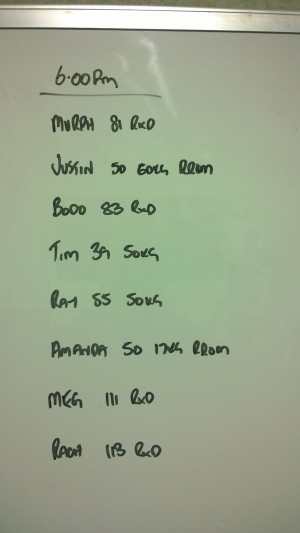 6.00pm
MURPH 81 RXD
JUSTIN 50 60KG RROM
BODO 83 RXD
TIM 39 50KG
RAY 55 50KG
AMANDA 50 17KG RROM
MEG 111 RXD
113 RXD